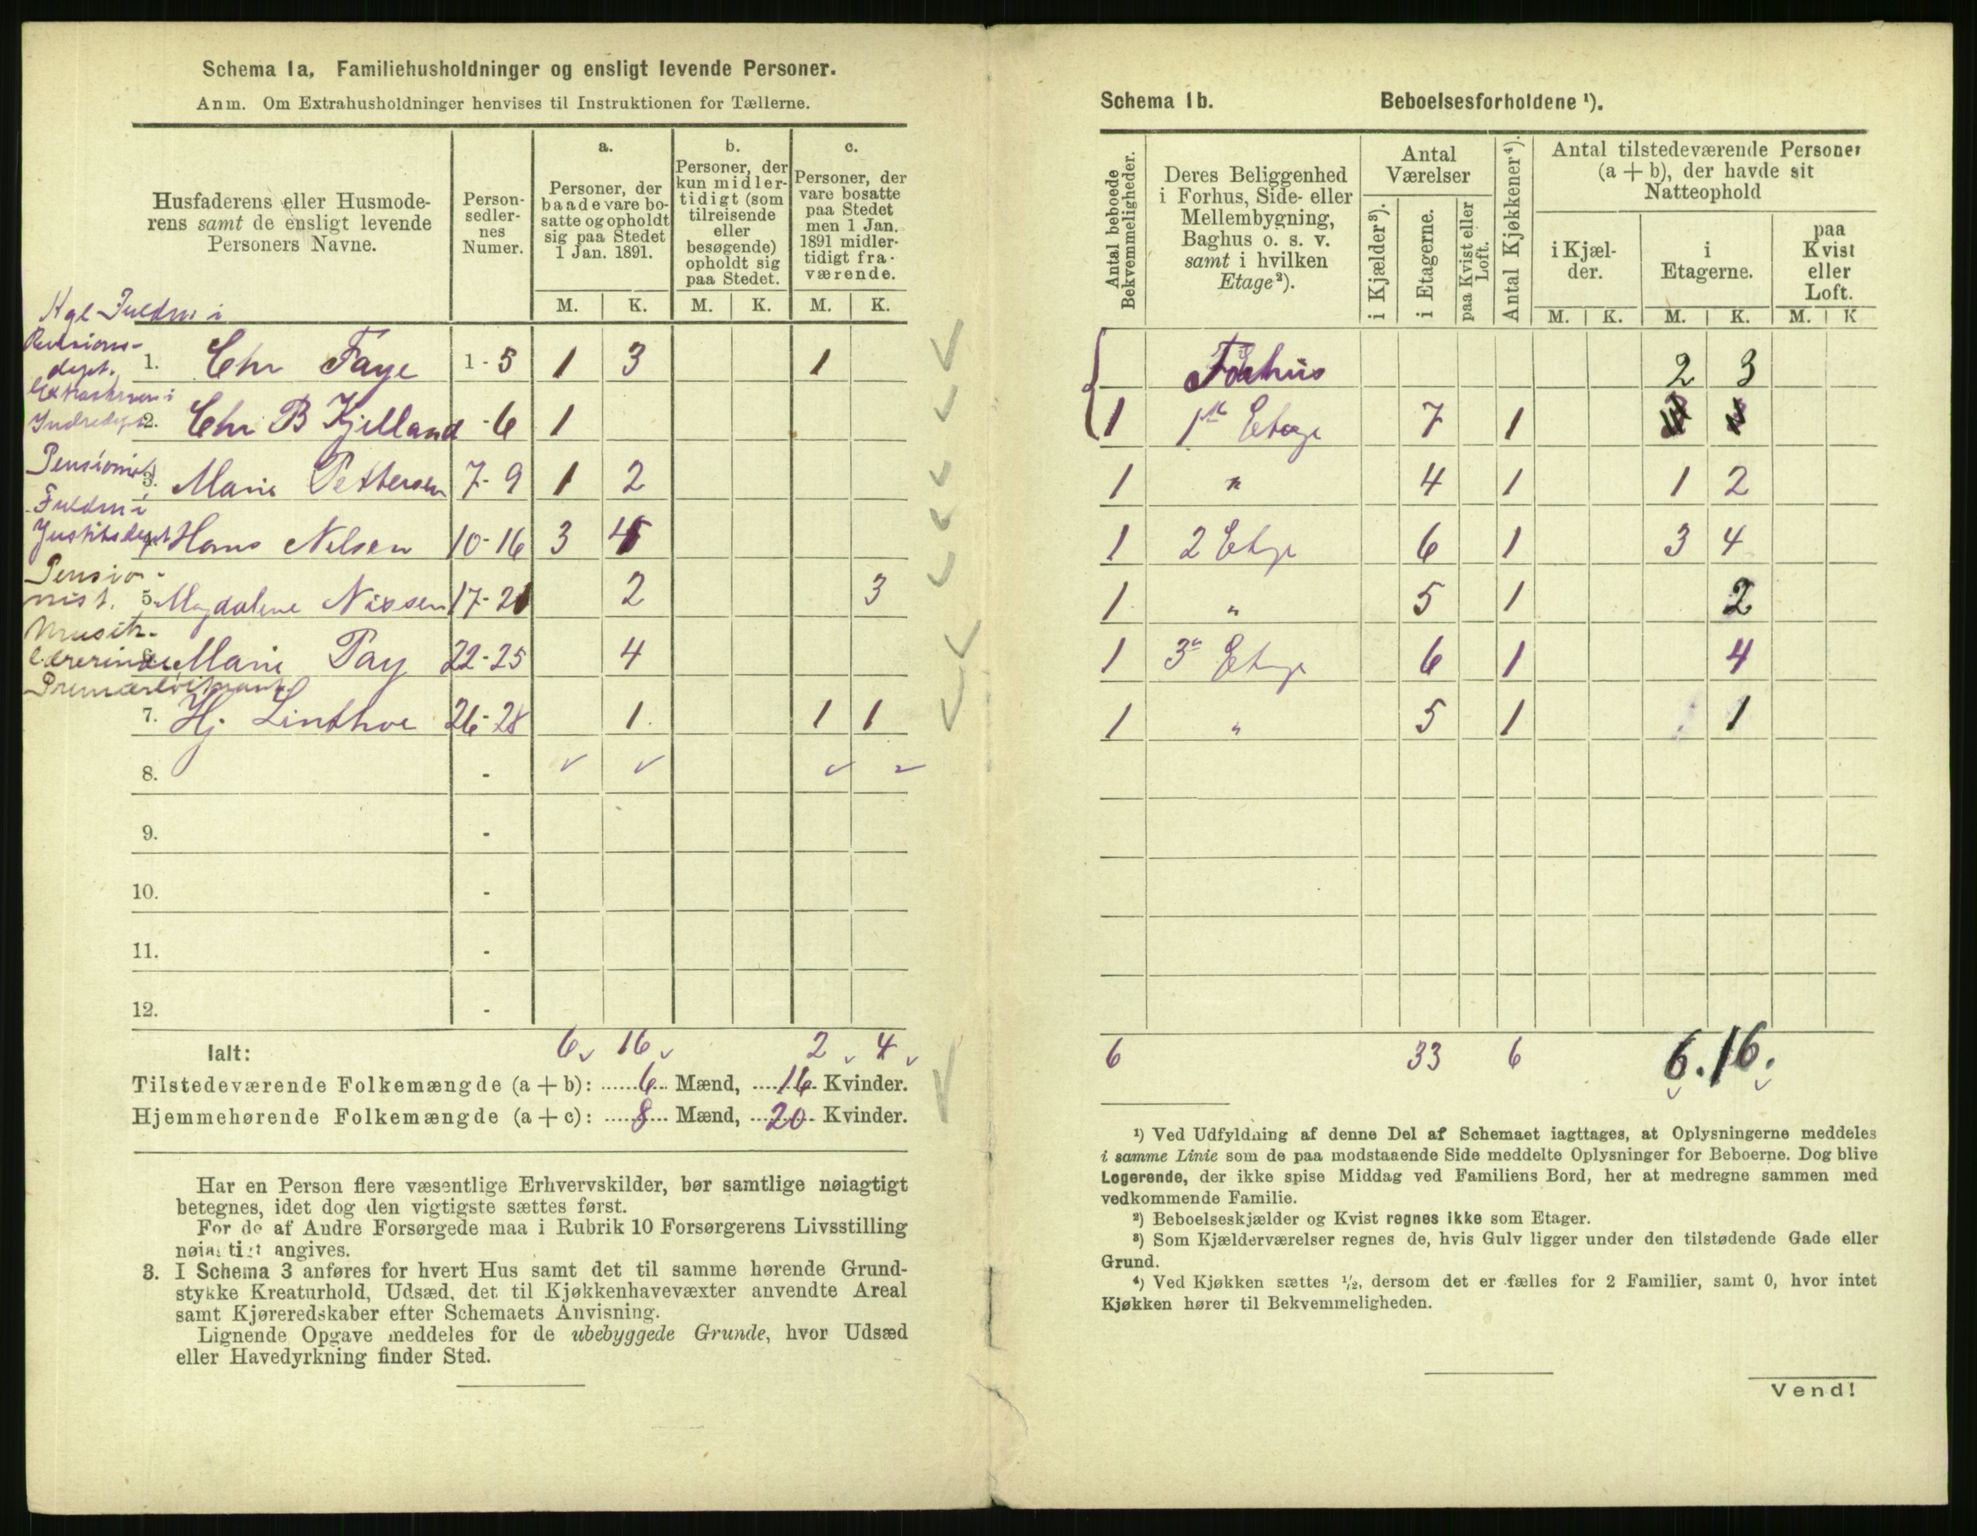 Schema 1a, Familiehusholdninger og ensligt levende Personer.
Anm. Om Extrahusholdninger henvises til Instruktionen for Tællerne.
Husfaderens eller Husmode-
rens samt de ensligt levende
Personers Navne.
Person-
sedler-
nes
Numer.
a.
Personer, der
baade vare bo-
satte og opholdt
sig paa Stedet
1 Jan. 1891.
b.
Personer, der
kun midler-
tidigt (som
tilreisende
eller
besøgende)
opholdt sig
paa Stedet.
c.
Personer, der
vare bosatte
paa Stedet
men 1 Jan.
1891 midler-
tidigt fra-
værende.
M. K. M. K. M. K.
Kgl Fuldm i
Revisions-
dept. 1. Chr Faye 1-5 1 3 1
Indredept 2. Chr B Kjelland -6 1
Pensionist 3. Marie Pettersen 7-9 1 2
Fuldm i
Justitsdept Hans Nilsen 10-16 3 4
Pensio-
nist. 5. Magdalene Nissen 17-21 2 3
Musik-
lærerinde Marie Pay 22-25 4
Premierløitnant
7. Hj. Linthoe 26-28 1 1 1
8. -
9. -
10. -
11. -
12. -
Ialt: 6 16 2 4
Tilstedeværende Folkemængde (a + b): 6 Mænd, 16 Kvinder.
Hjemmehørende Folkemængde (a + c): 8 Mænd, 20 Kvinder.
Har en Person flere væsentlige Erhvervskilder, bør samtlige nøiagtigt
betegnes, idet dog den vigtigste sættes først.
For de af Andre Forsørgede maa i Rubrik 10 Forsørgerens Livsstilling
nøiagtigt angives.
3. I Schema 3 anføres for hvert Hus samt det til samme hørende Grund-
stykke Kreaturhold, Udsæd, det til Kjøkkenhavevæxter anvendte Areal
samt Kjøreredskaber efter Schemaets Anvisning.
Lignende Opgave meddeles for de ubebyggede Grunde, hvor Udsæd
eller Havedyrkning finder Sted.
Schema 1b. Beboelsesforholdene ¹).
Antal beboede
Bekvemmeligheder.
Deres Beliggenhed
i Forhus, Side- eller
Mellembygning,
Baghus o. s. v.
samt i hvilken
Etage²).
Antal
Værelser
i Kjælder³).
i Etagerne.
paa Kvist eller
Loft.
Antal Kjøkkener⁴).
Antal tilstedeværende Personer
(a + b), der havde sit
Natteophold
i Kjæl-
der.
i
Etagerne.
paa
Kvist
eller
Loft.
M. K. M. K. M. K
Forhus 2 3
1 1ste Etage 7 1
1 " 4 1 1 2
1 2 Etage 6 1 3 4
1 " 5 1 2
1 3die Etage 6 1 4
1 " 5 1 1
6 33 6 6. 16.
¹) Ved Udfyldning af denne Del af Schemaet iagttages, at Oplysningerne meddeles
i samme Linie som de paa modstaaende Side meddelte Oplysninger for Beboerne. Dog blive
Logerende, der ikke spise Middag ved Familiens Bord, her at medregne sammen med
vedkommende Familie.
²) Beboelseskjælder og Kvist regnes ikke som Etager.
³) Som Kjælderværelser regnes de, hvis Gulv ligger under den tilstødende Gade eller
Grund.
⁴) Ved Kjøkken sættes ½, dersom det er fælles for 2 Familier, samt 0, hvor intet
Kjøkken hører til Bekvemmeligheden.
Vend!